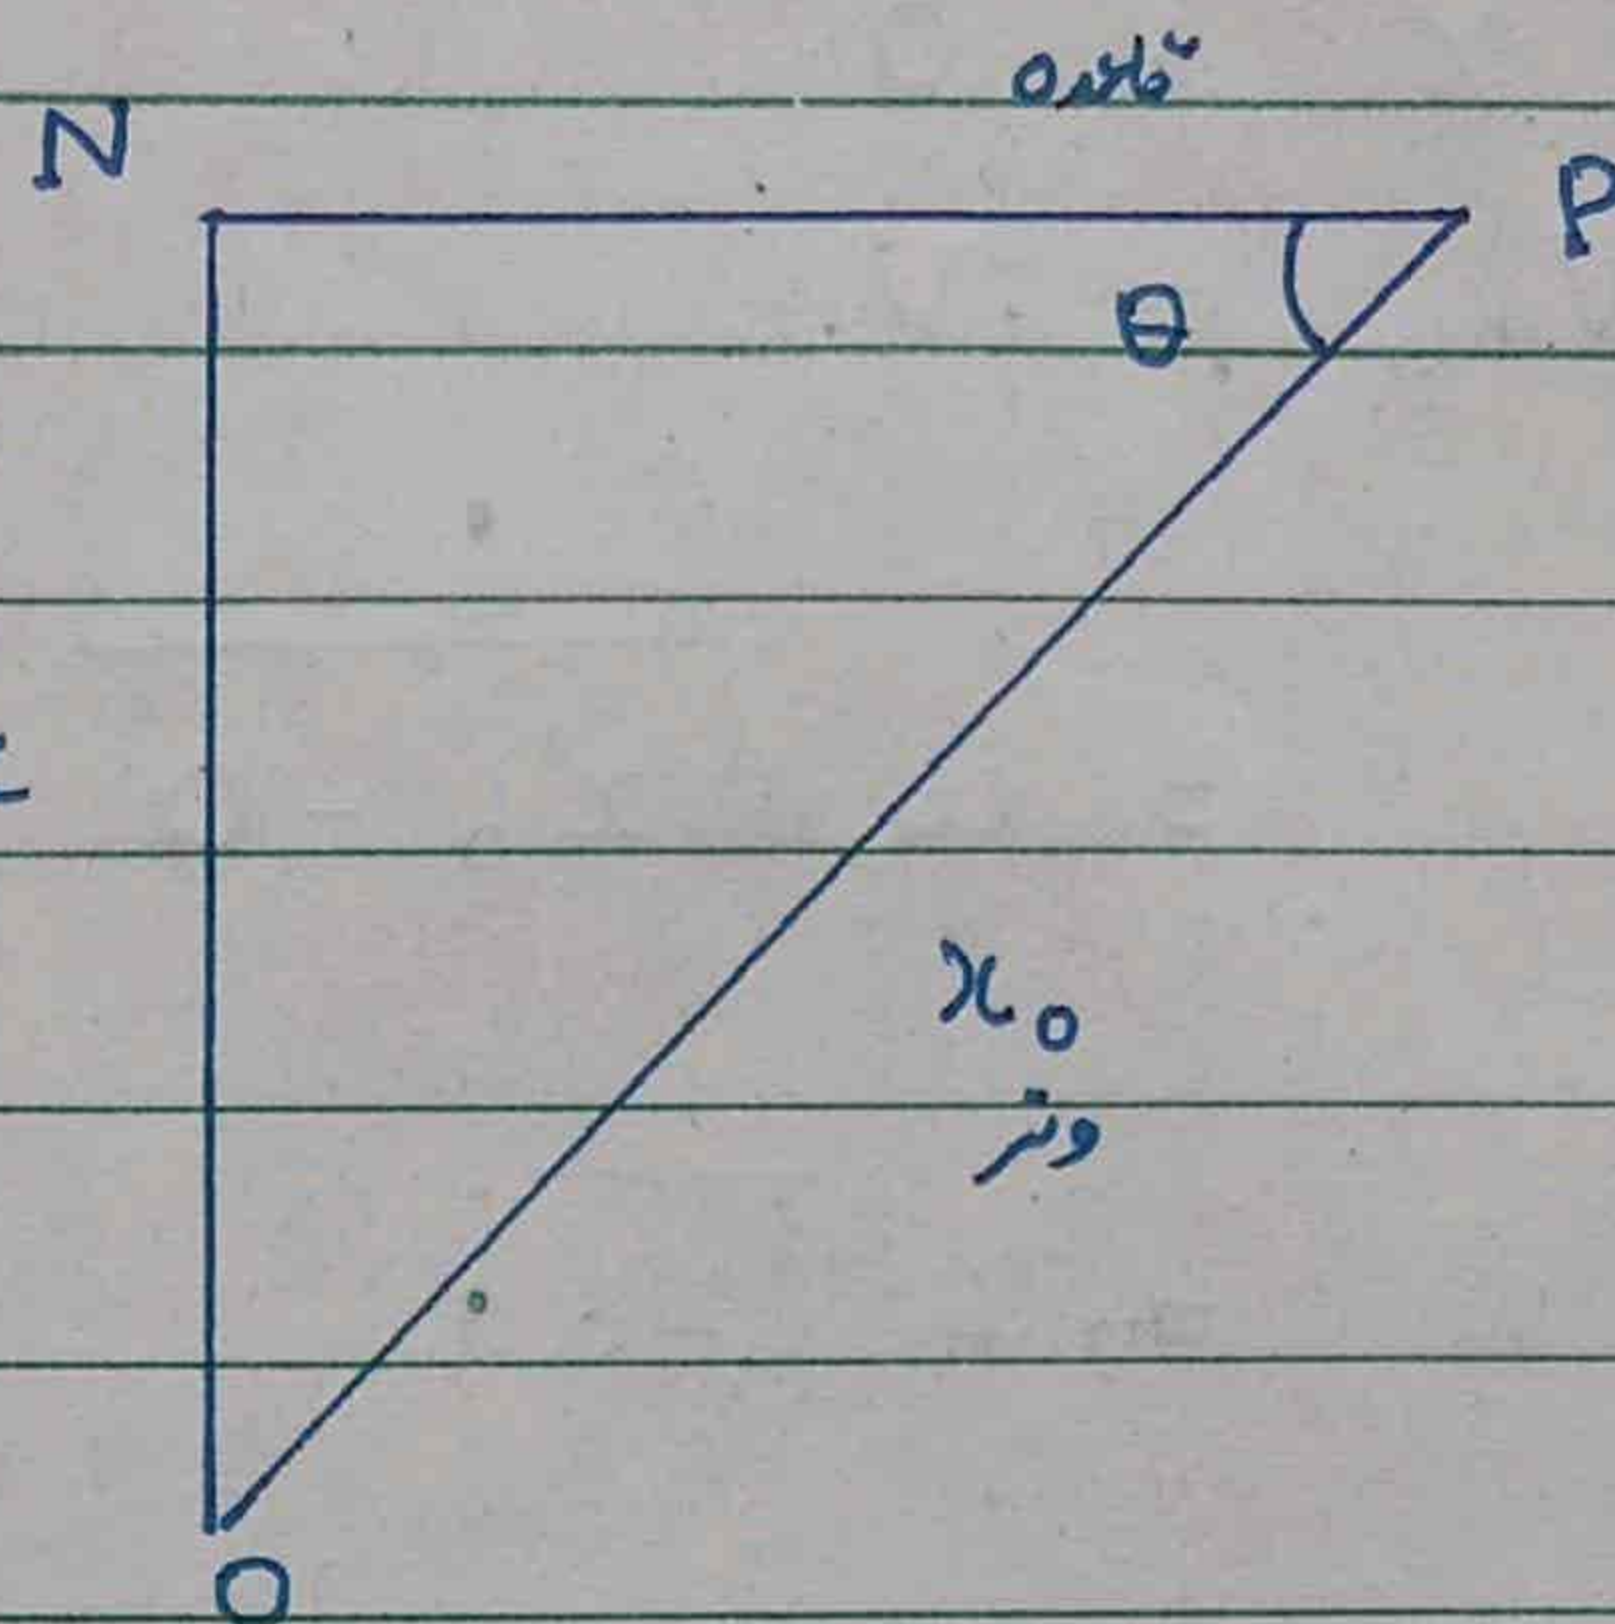 قاعدہ
N
P
θ
x₀
وتر
O